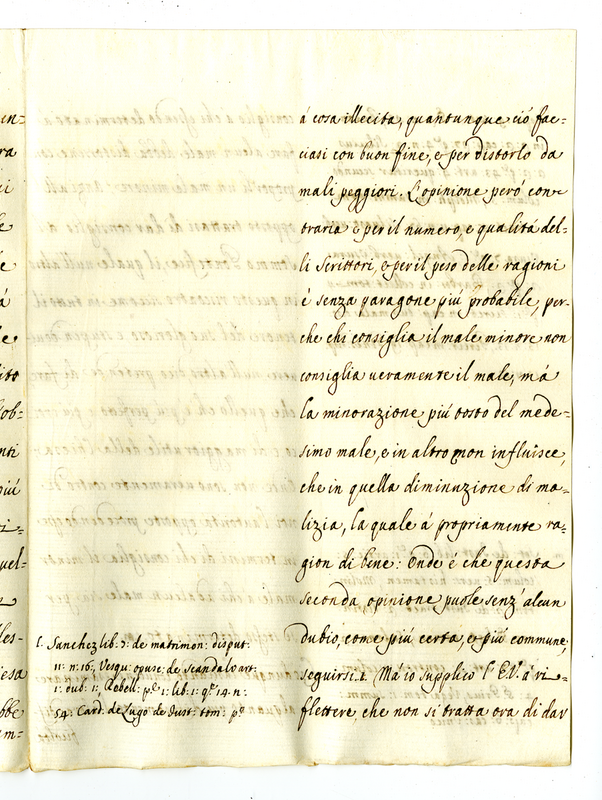 á cosa illecita, quantunque ció fac=
ciasi con buon fine, e per distorlo da
mali peggiori. L'opinione peró con=
traria é per il numero, e qualitá del=
li Scrittori, e per il peso delle ragioni
é senza paragone piú probabile, per=
che chi consiglia il male minore non
consiglia veramente il male, má
la minorazione piú tosto del mede=
simo male, e in altro non influisce,
che in quella diminuzione di ma=
lizia, la quale á propriamente ra=
gion di bene: Onde é che questa
seconda opinione puole senz'alcun
dubio, come piú certa, e piú commune,
seguirsi. 1. Má io supplico l'E.V. á ri=
flettere che non si tratta ora di dar
1. Sanchez lib: 7: de matrimon: disput:
11: n: 16, Vesqu: opusc: de scandal: art:
1: dub: 1: Rebell: pe: 1: lib: 1: qe 14: n:
54: Card: de Lugo de Iust: tom: po